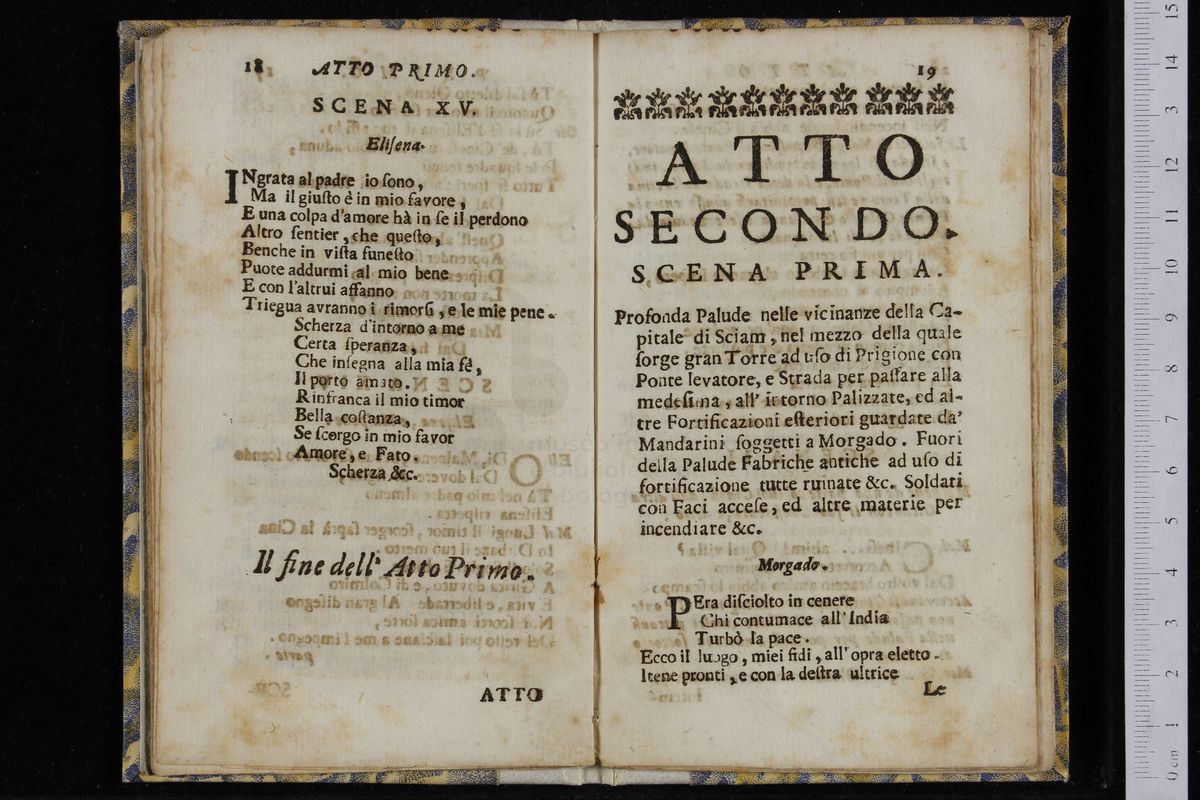 18 ATTO PRIMO.
SCENA XV.
Elisena.
INgrata al padre io sono,
Ma il giusto è in mio favore,
E una colpa d'amore hà in se il perdono
Altro sentier, che questo,
Benche in vista funesto
Puote addurmi al mio bene
E con l'altrui affanno
Triegua avranno i rimorsi, e le mie pene.
Scherza d'intorno a me
Certa speranza,
Che insegna alla mia fè,
Il porto amato.
Rinfranca il mio timor
Bella costanza,
Se scorgo in mio favor
Amore, e Fato.
Scherza &c.
Il fine dell' Atto Primo.
ATTO
19
ATTO
SECONDO.
SCENA PRIMA.
Profonda Palude nelle vicinanze della Ca-
pitale di Sciam, nel mezzo della quale
sorge gran Torre ad uso di Prigione con
Ponte levatore, e Strada per passare alla
medesima, all' intorno Palizzate, ed al-
tre Fortificazioni esteriori guardate da'
Mandarini soggetti a Morgado. Fuori
della Palude Fabriche antiche ad uso di
fortificazione tutte ruinate &c. Soldati
con Faci accese, ed altre materie per
incendiare &c.
Morgado.
PEra disciolto in cenere
Chi contumace all'India
Turbò la pace.
Ecco il luogo, miei fidi, all'opra eletto.
Itene pronti, e con la destra ultrice
Le
0 cm 1 2 3 4 5 6 7 8 9 10 11 12 13 14 15